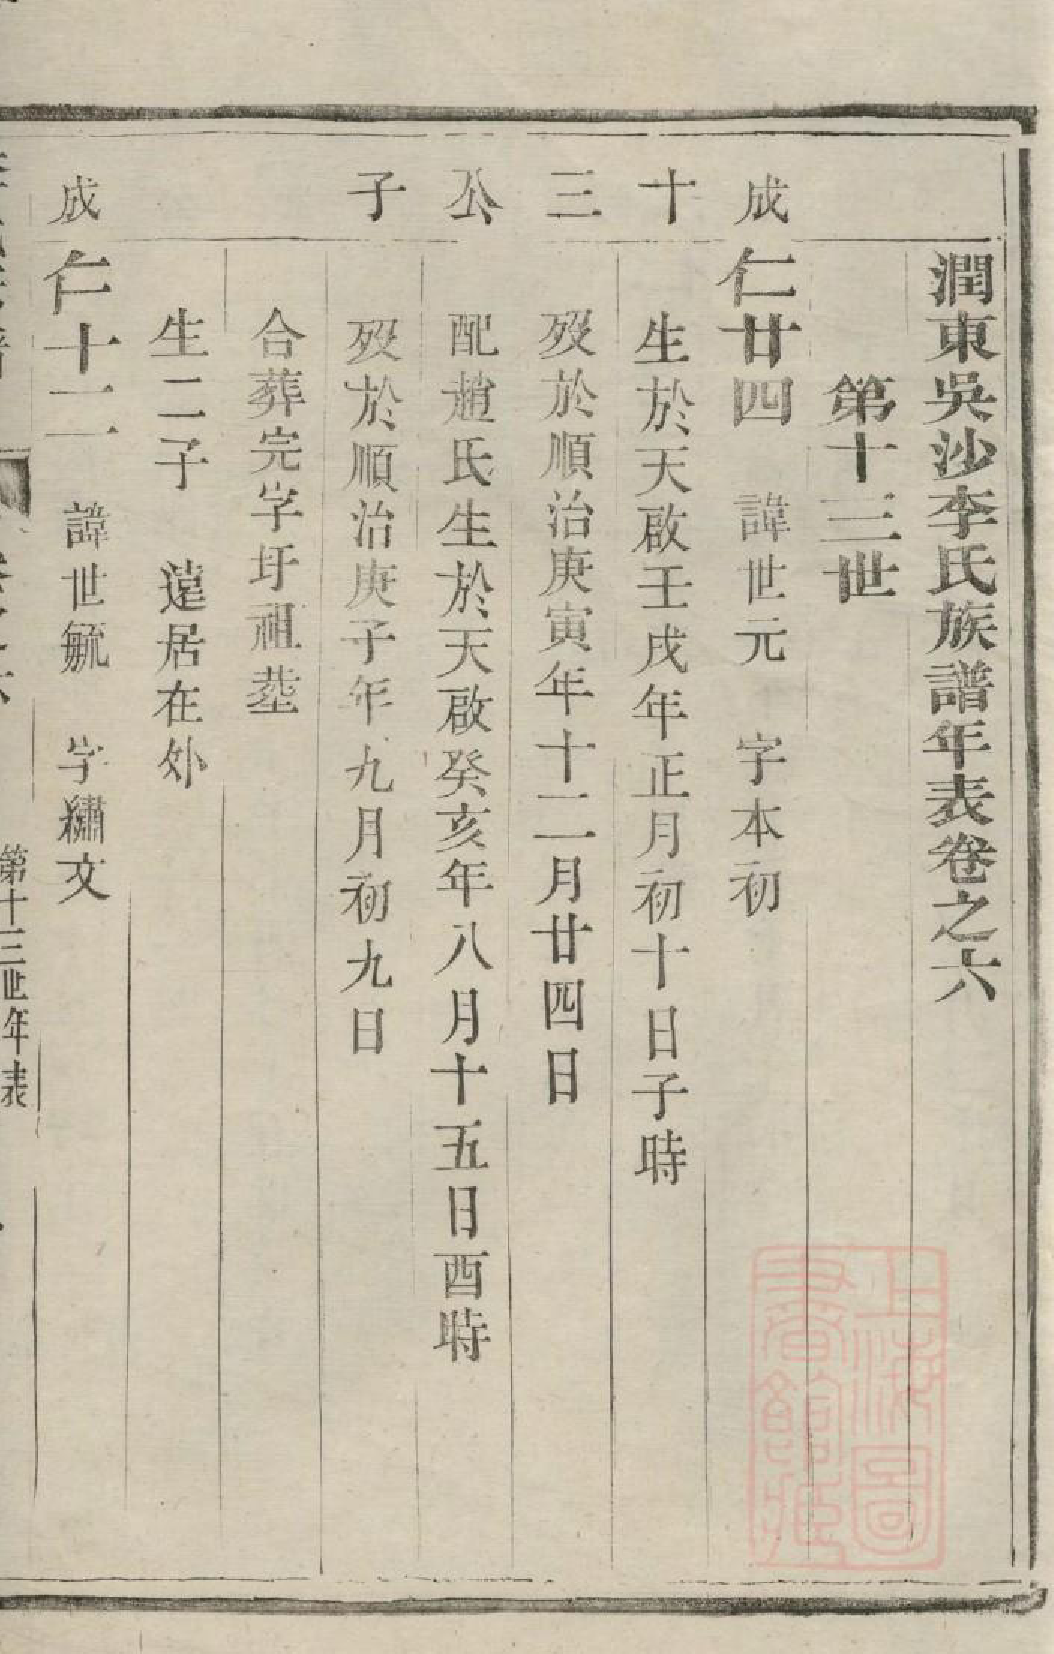 潤東吳沙李氏族譜年表卷之六
第十三世
成 仁廿四 諱世元 字本初
十 生於天啟壬戌年正月初十日子時
三 歿於順治庚寅年十二月廿四日
公 配趙氏生於天啟癸亥年八月十五日酉時
子 歿於順治庚子年九月初九日
合葬完字圩祖塋
生二子 遠居在外
成 仁十二 諱世毓 字繡文
第十三世年表
上海圖書館藏